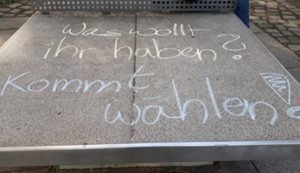 Was wollt
ihr haben?
Kommt
wählen!